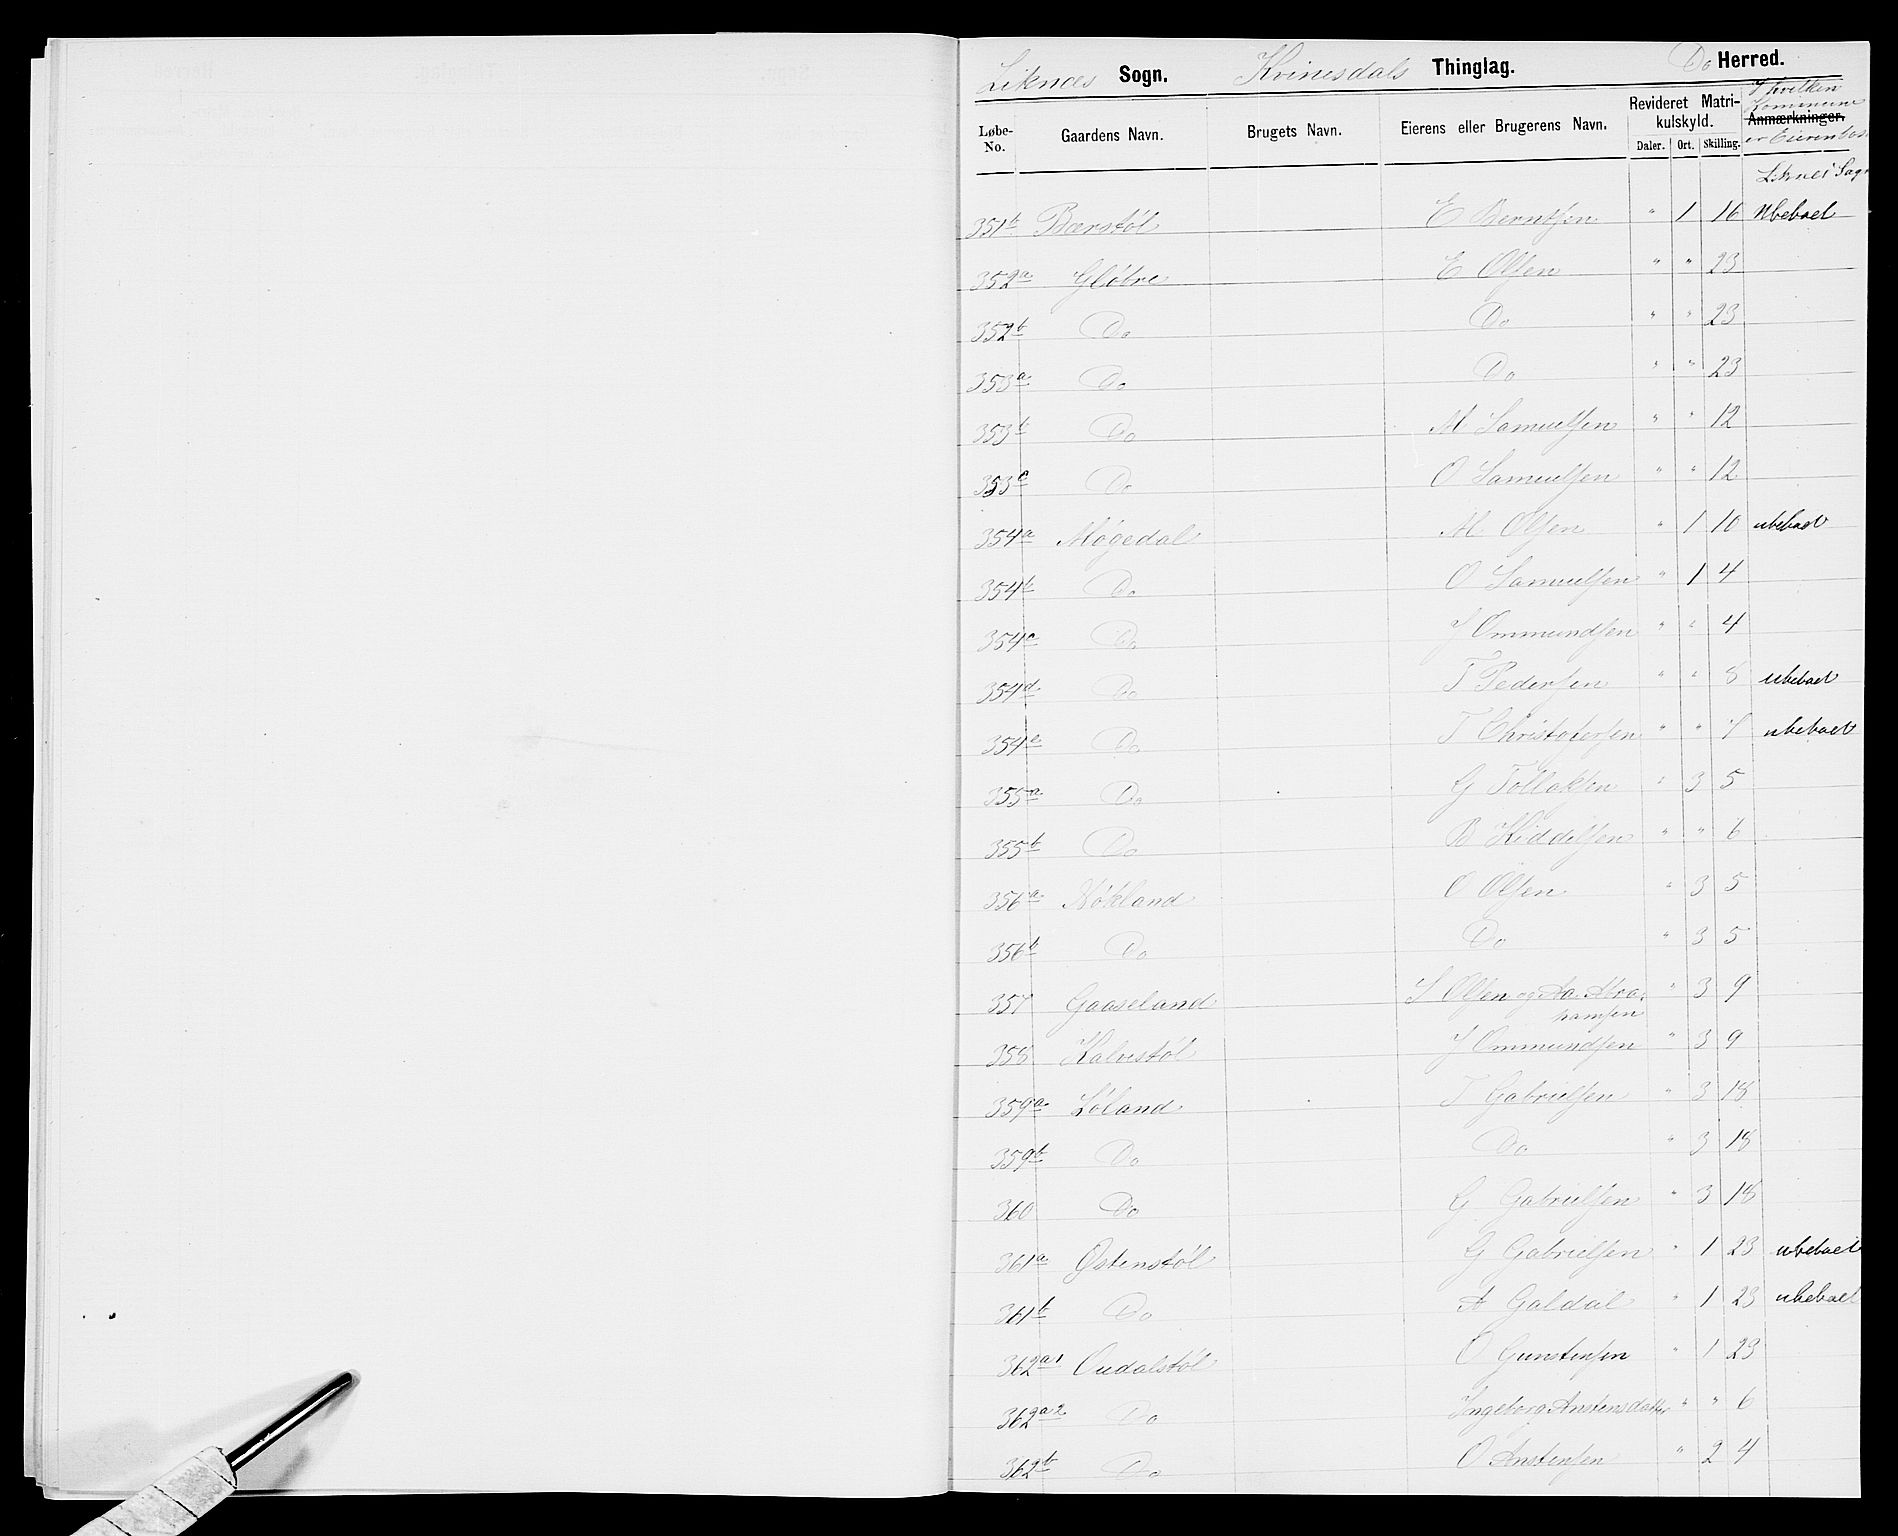 Liknæs Sogn. Kvinesdals Thinglag. Do Herred.
Løbe-No. Gaardens Navn. Brugets Navn. Eierens eller Brugerens Navn. Revideret Matrikulskyld. Daler. Ort. Skilling. Anmærkninger.
I hvilken
Kommune
er Eieren bos
Liknes Sogn
351b Bærstøl E Berntsen " 1 16 Ubeboet
352a Gløbre E Olsen " " 23
352b Do Do " " 23
353a Do Do " " 23
353b Do M Samuelsen " " 12
353c Do O Samuelsen " " 12
354a Møgedal M Olsen " 1 10 ubeboet
354b Do O Samuelsen " 1 4
354c Do J Ommundsen " " 4
354d Do T Pedersen " " 8 ubeboet
354e Do T Christofersen " " 7 ubeboet
355a Do G Tollaksen " 3 5
355b Do B Kiddelsen " " 6
356a Nøkland O Olsen " 3 5
356b Do Do " 3 5
357 Gaaseland S Olsen og Aa. Abra-
hamsen " 3 9
358 Kalvestøl J Ommundsen " 3 9
359a Løland T Gabrielsen " 3 18
359b Do Do " 3 18
360 Do G Gabrielsen " 3 18
361a Østenstøl G Gabrielsen " 1 23 ubeboet
361b Do A Galdal " 1 23 ubeboet
362a1 Oudalstøl O Gunstensen " 1 23
362a2 Do Ingeborg Anstensdatter " " 6
362b Do O Anstensen " 2 4